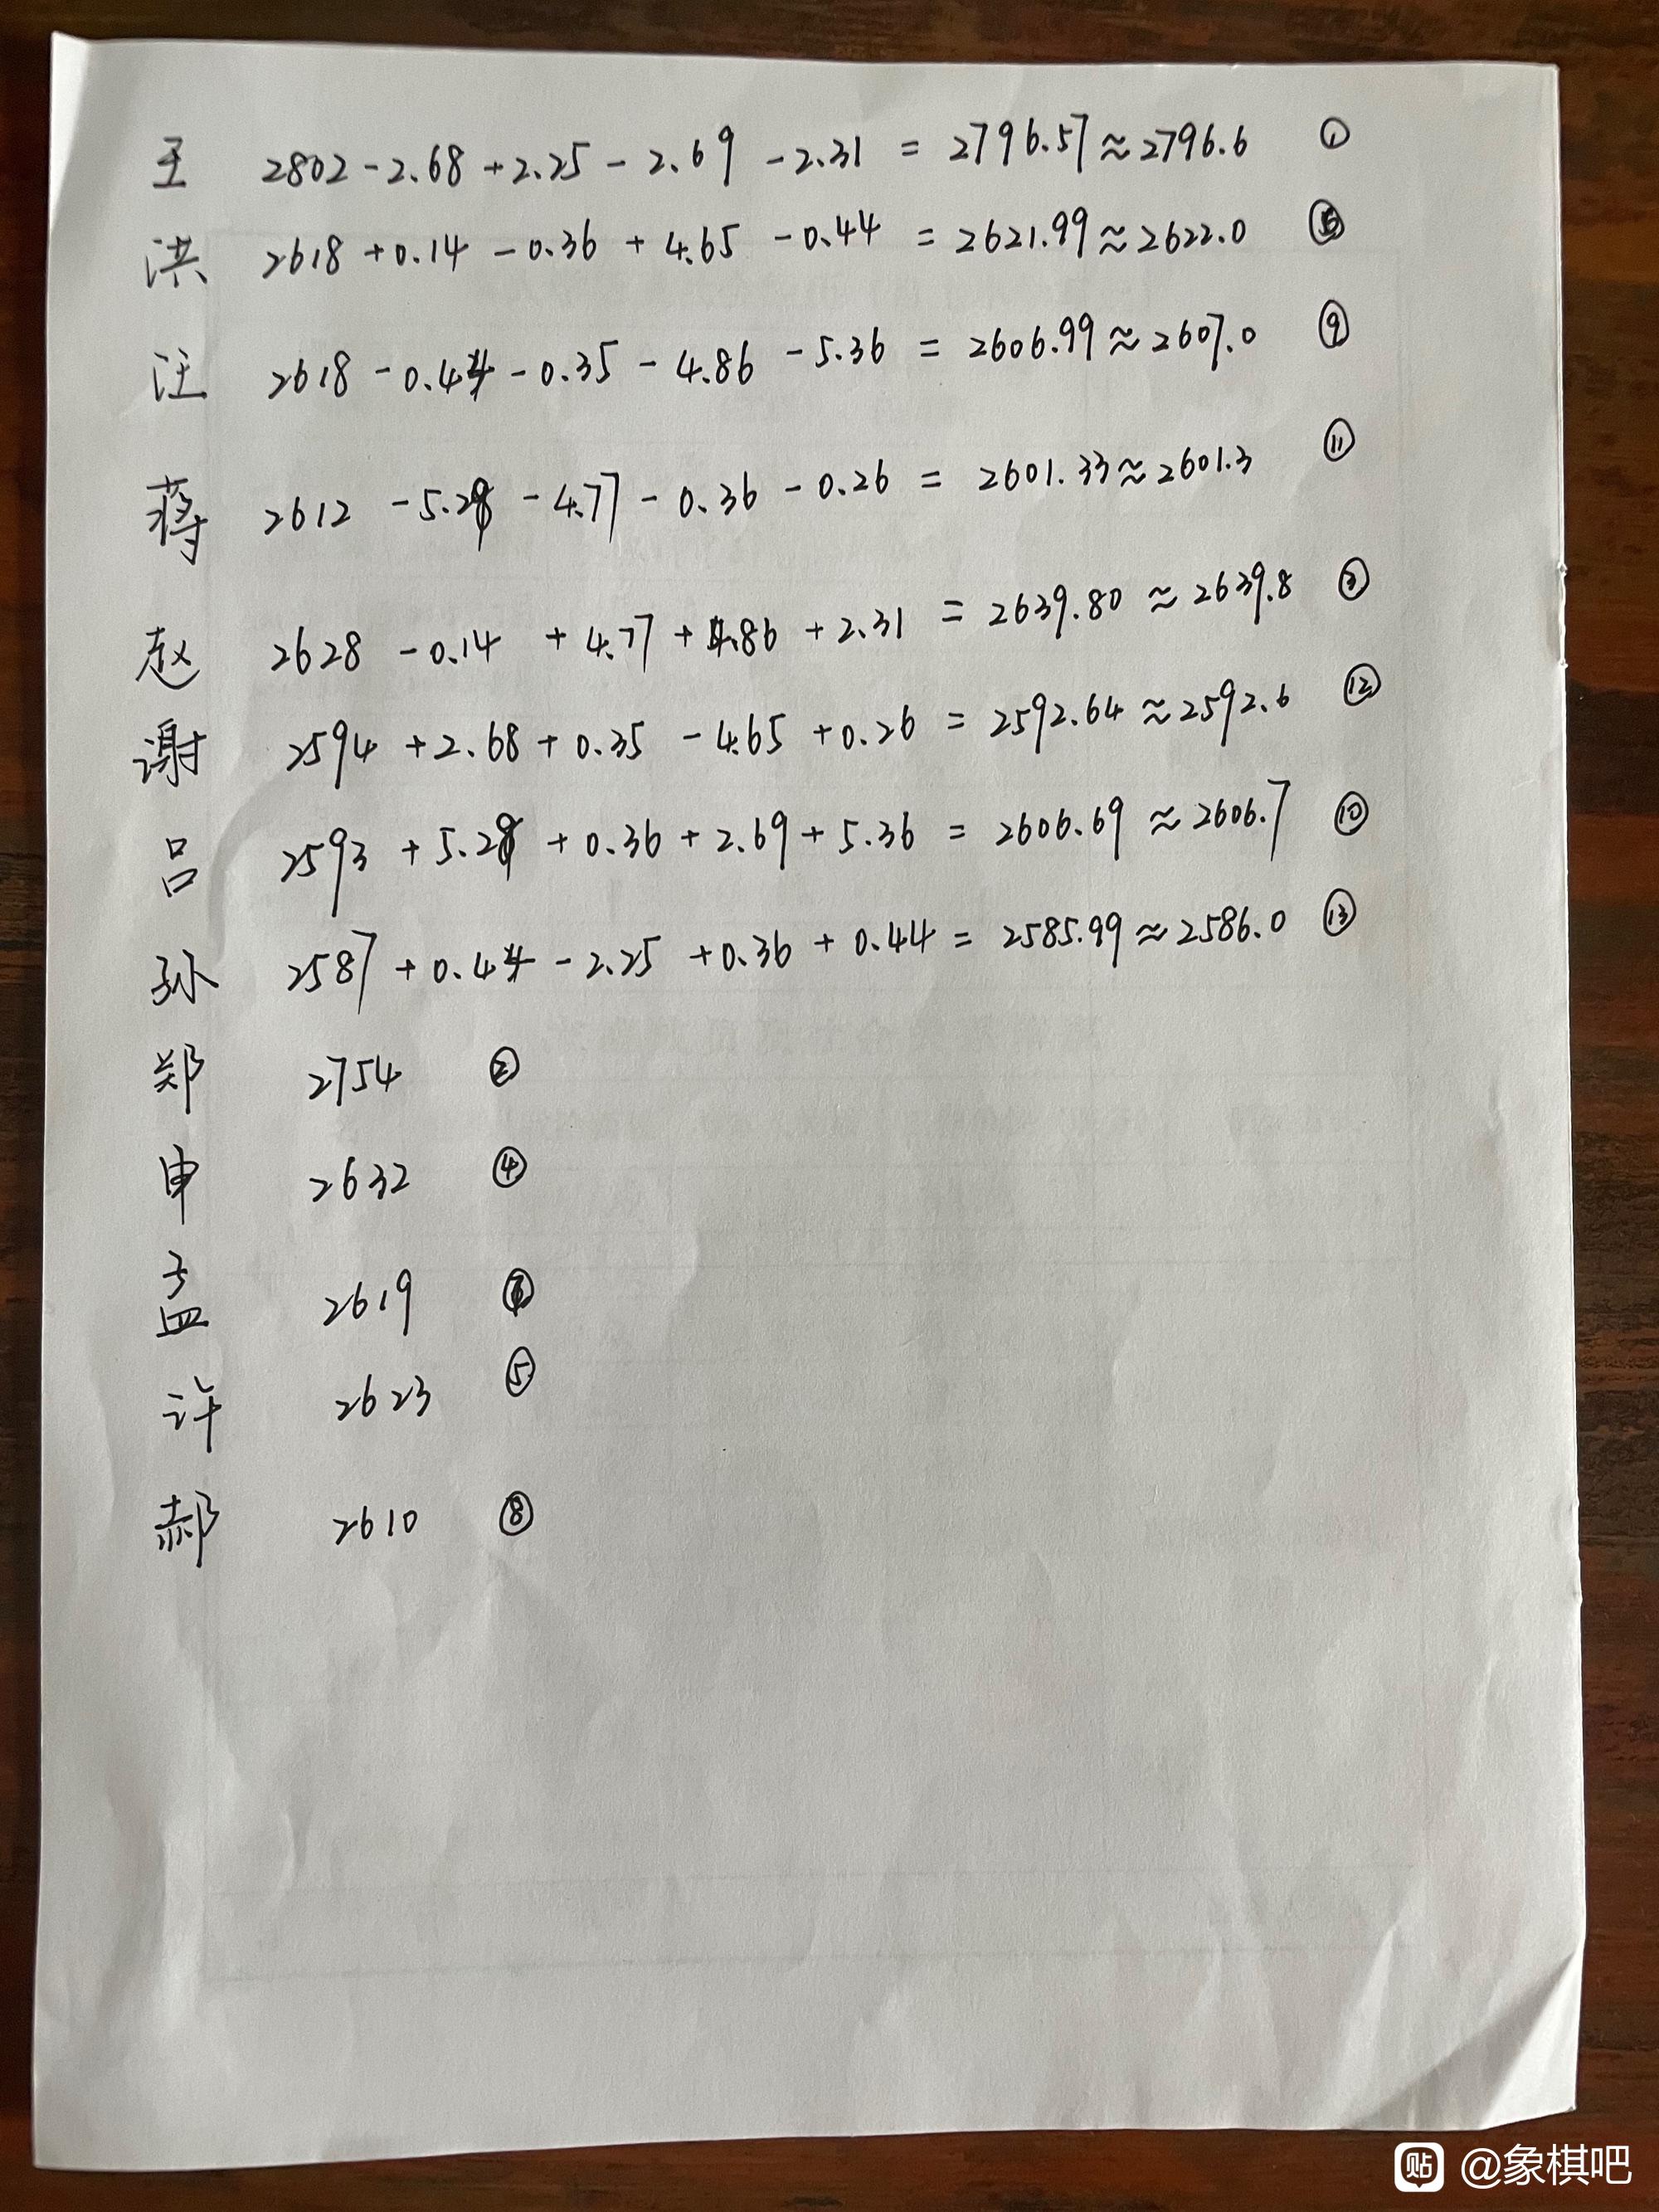 王 2802 - 2.68 + 2.25 - 2.69 - 2.31 = 2796.57 ≈ 2796.6 ①
洪 2618 + 0.14 - 0.36 + 4.65 - 0.44 = 2621.99 ≈ 2622.0 ⑥
汪 2618 - 0.44 - 0.35 - 4.86 - 5.36 = 2606.99 ≈ 2607.0 ⑨
蒋 2612 - 5.28 - 4.77 - 0.36 - 0.26 = 2601.33 ≈ 2601.3 ⑪
赵 2628 - 0.14 + 4.77 + 4.86 + 2.31 = 2639.80 ≈ 2639.8 ③
谢 2594 + 2.68 + 0.35 - 4.65 + 0.26 = 2592.64 ≈ 2592.6 ⑫
吕 2593 + 5.28 + 0.36 + 2.69 + 5.36 = 2606.69 ≈ 2606.7 ⑩
孙 2587 + 0.44 - 2.25 + 0.36 + 0.44 = 2585.99 ≈ 2586.0 ⑬
郑 2754 ②
申 2632 ④
孟 2619 ⑦
许 2623 ⑤
郝 2610 ⑧
贴 @象棋吧